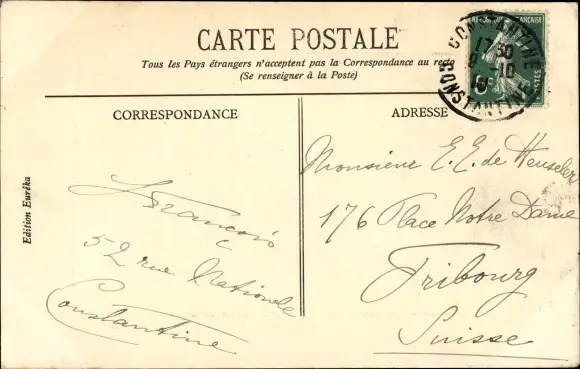 CARTE POSTALE
Tous les Pays étrangers n'acceptent pas la Correspondance au recto
(Se renseigner à la Poste)
CORRESPONDANCE
ADRESSE
Edition Eurêka
L François
52 rue Nationale
Constantine
Monsieur E. E. de Heuseler
176 Place Notre Dame
Fribourg
Suisse
REPUBLIQUE FRANÇAISE
POSTES
17 30
10
CONSTANTINE